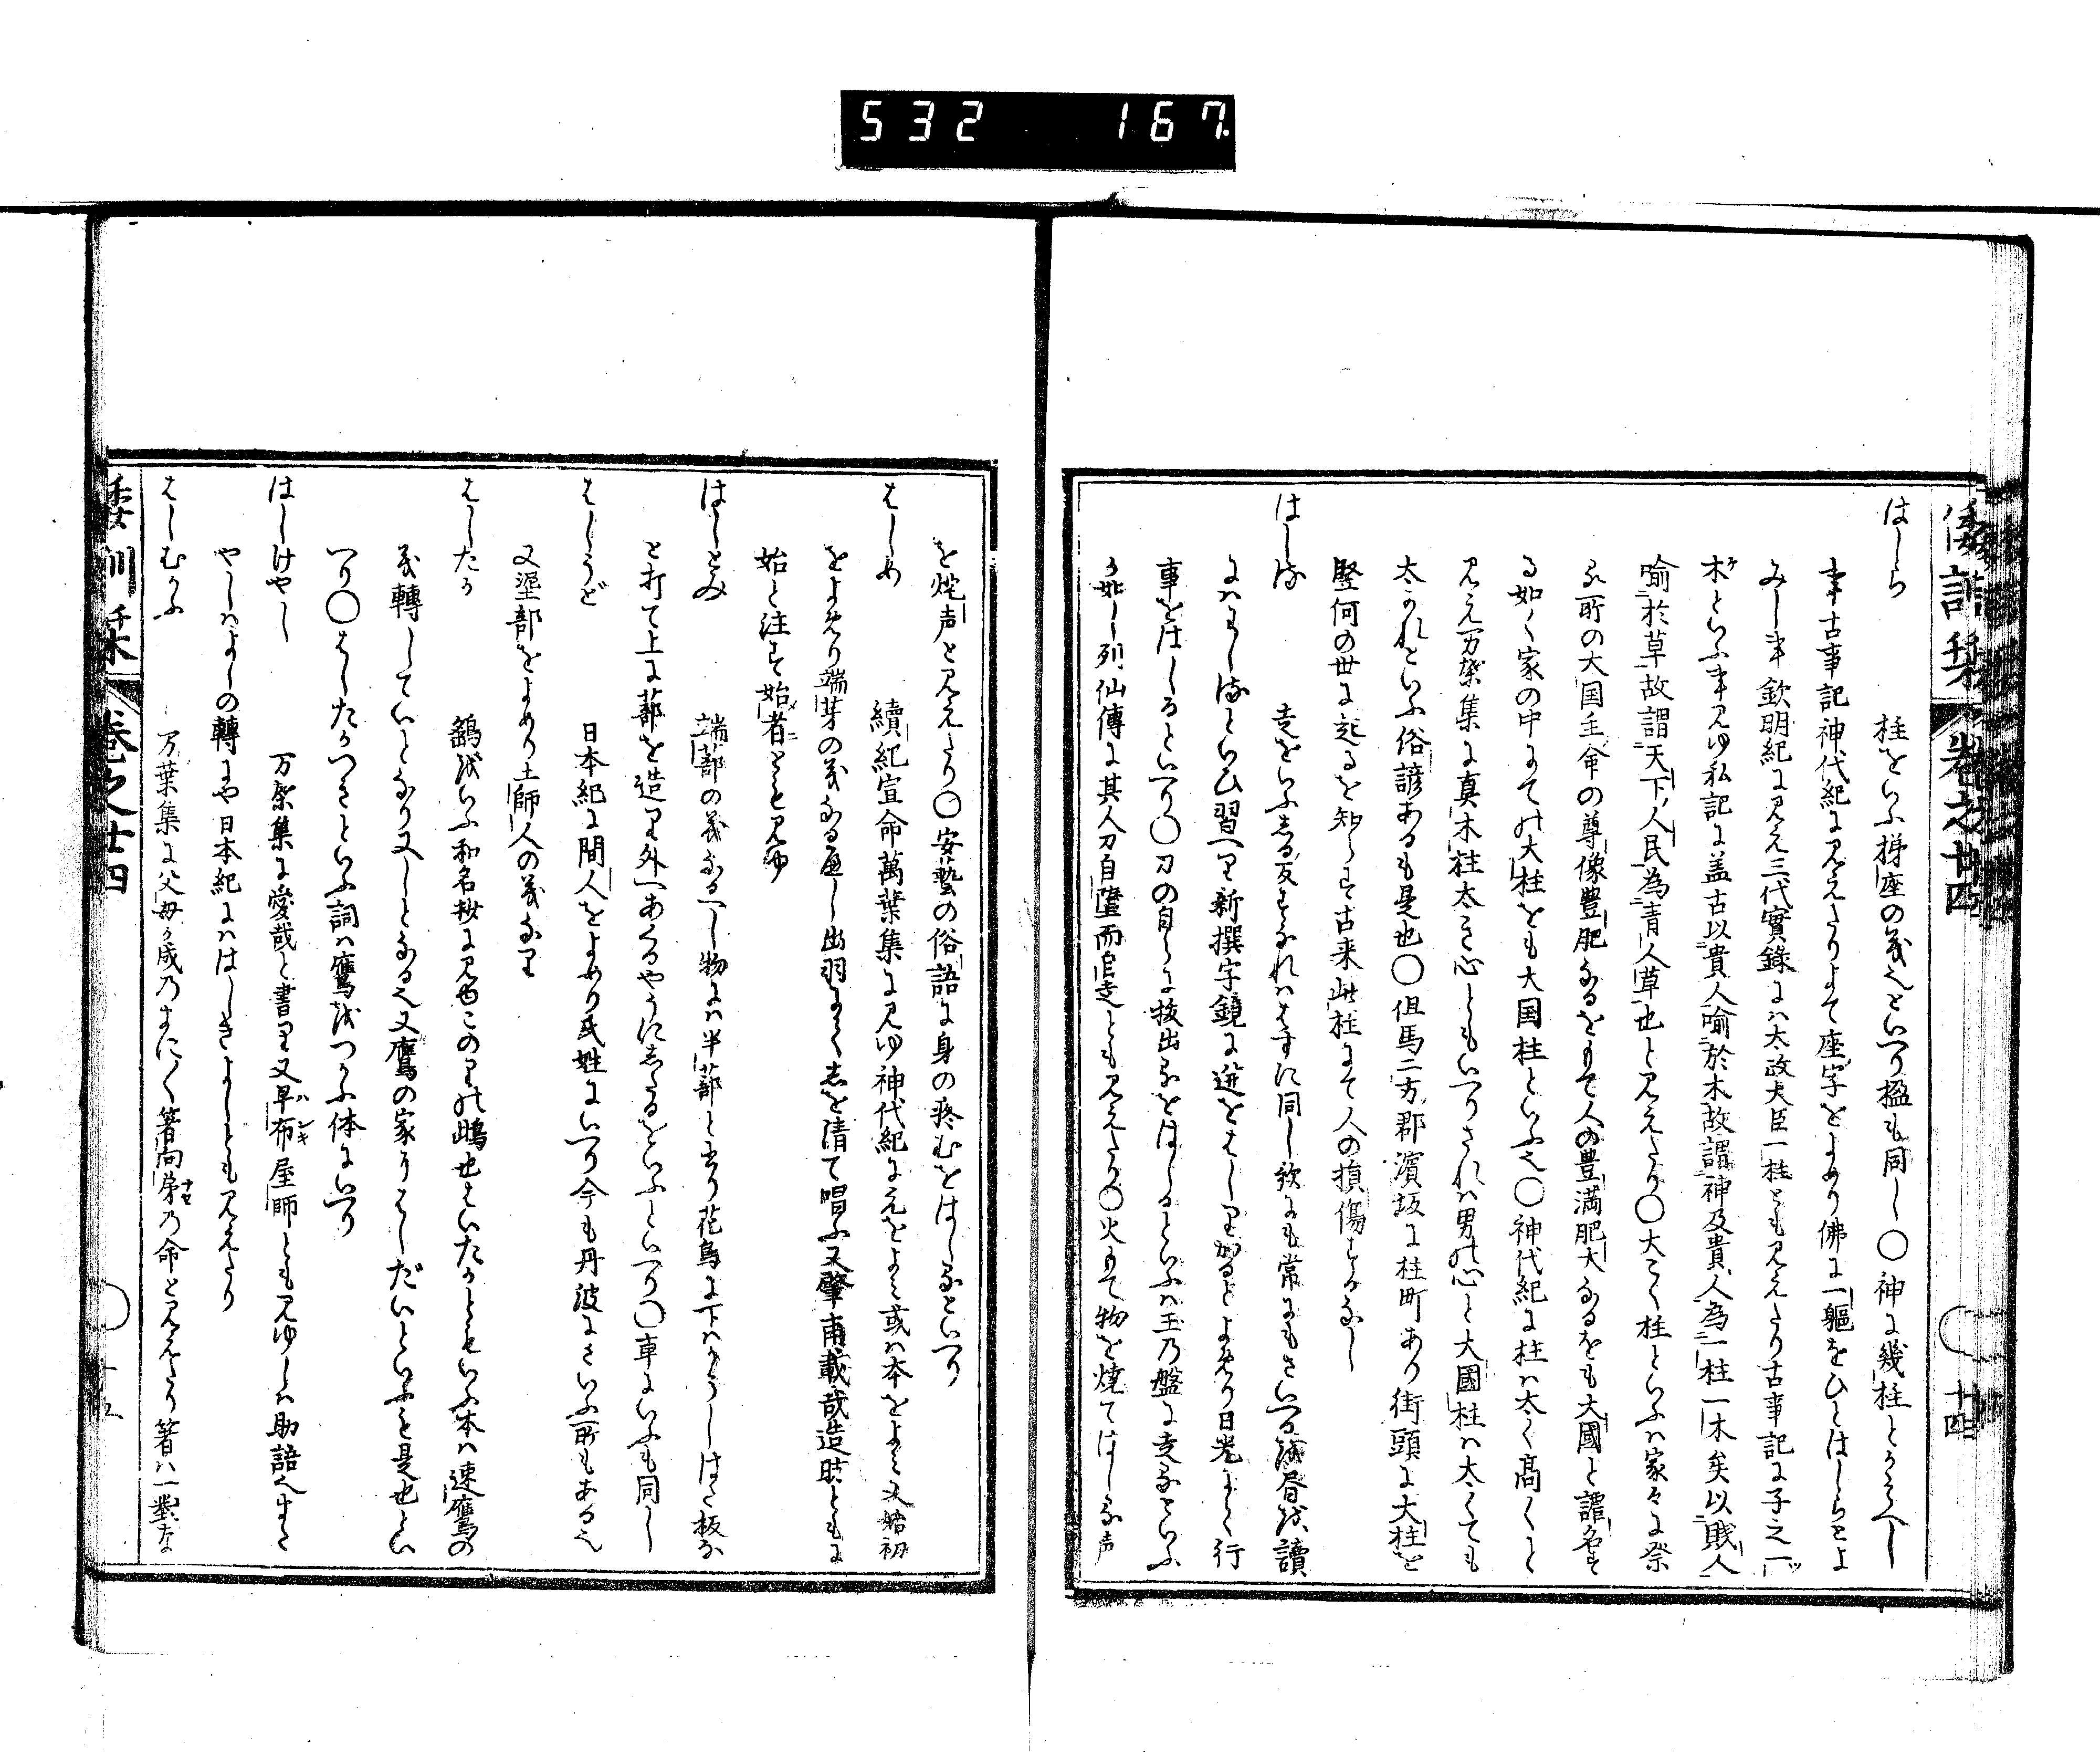 532 167
倭訓栞 卷之廿四 十四
はしら 柱をいふ㨶座の義也といへり楹も同し〇神に幾柱とかそへし
事古事記神代紀に見えたりよて座字をよめり佛に一軀をひとはしらとよ
みし事欽明紀に見え三代實錄には太政大臣一柱とも見えたり古事記に子之一ツ
木ケといふ事見ゆ私記に盖古以貴人喻於木故謂神及貴人為一柱一木矣以賎人
喻於草故謂天下人民為青人草也と見えたり〇大こく柱といふは家々に祭
る所の大国主命の尊像豊肥なるをもて人の豊満肥大なるをも大國と諢名す
る如く家の中にての大柱をも大国柱といふ也〇神代紀に柱は太く高くと
見え万葉集に真木柱太き心ともいへりされは男の心と大國柱は太くても
太かれといふ俗諺あるも是也〇但馬二方郡濱坂に柱町あり街頭に大柱を
竪何の世に起るを知らす古来此柱にて人の損傷するなし
はしる 走をいふしる反すなれははすに同し歌にも常にもさいへる識昏を讀
にはわしるといひ習へり新撰字鏡に迸をはしりかるとよめり日光にて行
事をはしるといへり〇刀の自らに拔出るをはしるといふは玉乃盤に走るといふ
か如し列仙傳に其人刀自墮而自走とも見えたり〇火もて物を燒てはしる声
を烢声と見えたり〇安藝の俗語に身の疼むをはしるといへり
はしめ 續紀宣命萬葉集に見ゆ神代紀に元をよみ或は本をよみ又始初
をよめり端芽の義なる無し出羽にてしを清て唱ふ又肇甫載哉造昉ともに
始と注す始メ者ニとも見ゆ
はしとみ 端蔀の義なるへし物には半蔀とあり花鳥に下はかうしはた板な
と打て上に蔀を造り外へあくるやうにしたるをいふといへり〇車にいふも同し
はしうど 日本紀に間人をよめり民姓にいへり今も丹波にさいふ所もある也
又埿部をよめり土師人の義なり
はしたか 鷂をいふ和名抄に見ゆこのりの鴟也はいたかともいふ本は速鷹の
義轉していとなり又しとなる也又鷹の家りはしだいといふも是也とい
へり〇はしたかつきといふ詞は鷹をつかふ体にいへり
はしけやし 万葉集に愛哉と書り又早ハ布シキ屋師とも見ゆしは助語也すへ
やしはよしの轉にや日本紀にははしきよしとも見えたり
はしむかふ 万葉集に父母か成乃まにく箸向弟ナセ乃命と見えたり箸は一對な
倭訓栞 卷之廿四 十五